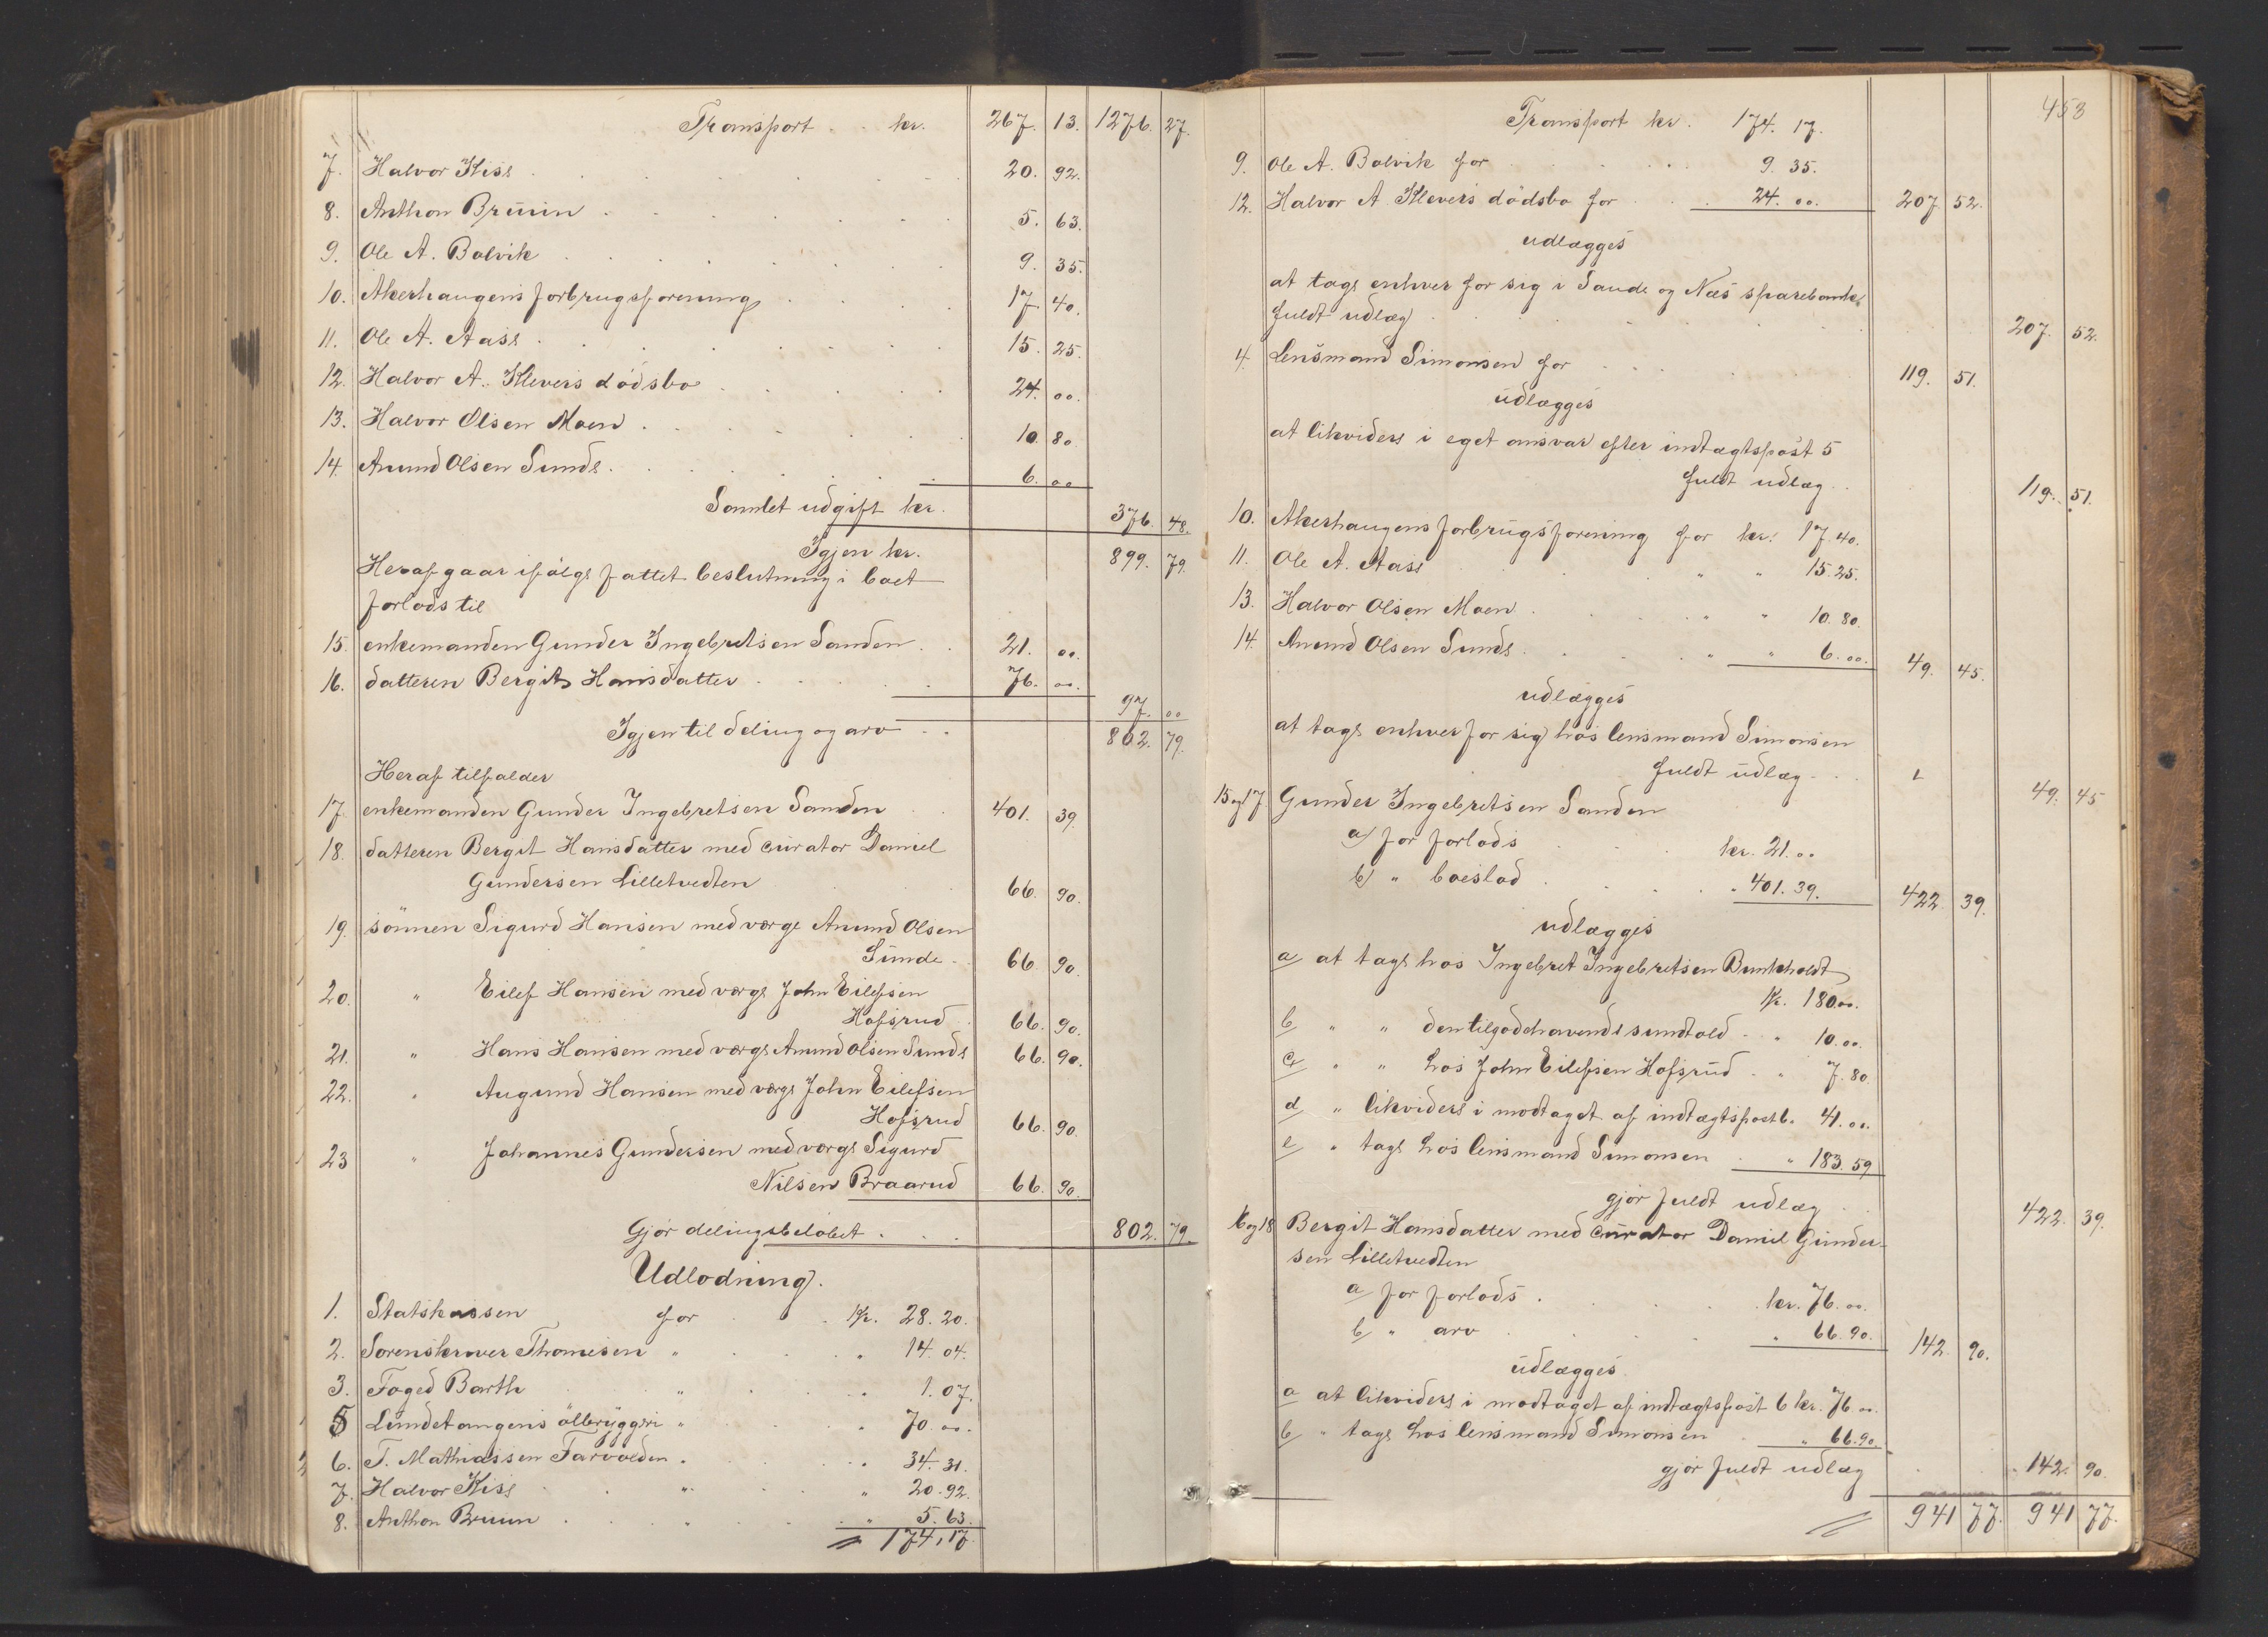 Transport kr. 267. 13. 1276. 27.
7. Halvor Kise 20. 92.
8. Anthon Bruun 5. 63.
9. Ole A. Bolvik 9. 35.
10. Akerhaugens forbrugsforening 17. 40.
11. Ole A. Aase 15. 25.
12. Halvor A. Klevers dödsbo 24. 00.
13. Halvor Olsen Moen 10 80.
14. Anund Olsen Sunde 6. 00
Samlet udgift kr. 376. 48.
Igjen kr. 899. 79.
Heraf gaar ifölge fattet beslutning i boet
forlods til
15. enkemanden Gunder Ingebretsen Sanden 21. 00.
16. datteren Bergit Hansdatter 76. 00.
97. 00
Igjen til deling og arv 802. 79.
Heraf tilfalder
17. enkemanden Gunder Ingebretsen Sanden 401. 39.
18. datteren Bergit Hansdatter med curator Daniel
Gundersen Lilletvedten 66. 90.
19. sönnen Sigurd Hansen med værge Anund Olsen
Sunde 66. 90.
20. " Eilef Hansen med værge John Eilefsen
Hofsrud 66. 90.
21. " Hans Hansen med værge Anund Olsen Sunde 66. 90.
22. " Augund Hansen med værge John Eilefsen
Hofsrud 66. 90.
23 " Johannes Gundersen med værge Sigurd
Nilsen Braarud 66. 90.
Gjör delingsbelöbet 802. 79.
Udlodning.
1. Statskassen for Kr. 28. 20.
2. Sorenskriver Thomesen " " 14. 04.
3. Foged Barth " " 1. 07.
5 Lundetangens ölbryggeri " " 70. 00.
6. T. Mathiassen Farvolden " " 34. 31.
7. Halvor Kise " " 20. 92.
8. Anthon Bruun " " 5. 63.
174,17
453
Transport kr. 174. 17.
9. Ole A. Bolvik for 9. 35.
12. Halvor A. Klevers dödsbo for 24. 00. 207 52.
udlægges
at tage enhver for sig i Saude og Næs sparebank
fuldt udlæg 207. 52.
4. Lensmand Simonsen for 119. 51.
udlægges
at likvidere i eget ansvar efter indtægtspost 5
fuldt udlæg 119. 51.
10. Akerhaugens forbrugsforening for kr. 17. 40.
11. Ole A. Aase " " 15. 25.
13. Halvor Olsen Moen " " 10. 80.
14. Anund Olsen Sunde " " 6. 00. 49. 45.
udlægges
at tage enhver for sig hos lensmand Simonsen
fuldt udlæg 49. 45
15 og 17 Gunder Ingebretsen Sanden
a/ for forlods kr. 21. 00
b/ " boeslod " 401. 39. 422. 39.
udlægges
a/ at tage hos Ingebret Ingebretsen Bunkholdt
Kr. 180.00.
b " " den tilgodehavende sundtold " 10. 00.
c/ " " hos John Eilefsen Hofsrud " 7. 80.
d " likvidere i modtaget af indtægtspost 6. 41. 00.
e " tage hos lensmand Simonsen " 183. 59
gjör fuldt udlæg 422. 39.
16 og 18 Bergit Hansdatter med curator Daniel Gunder-
sen Lilletvedten
a for forlods kr. 76. 00.
b " arv " 66. 90. 142. 90.
udlægges
a at likvidere i modtaget af indtægtspost 6 kr. 76 00.
b " tage hos lensmand Simonsen " 66. 90.
gjör fuldt udlæg 142. 90.
941 77. 941 77.